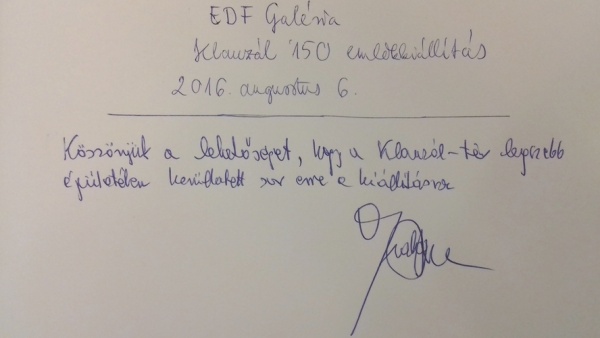 EDF Galéria
Klauzál '150 emlékkiállítás
2016. augusztus 6.
Köszönjük a lehetőséget, hogy a Klauzál-tér legszebb
épületében kerülhetett sor erre a kiállításra